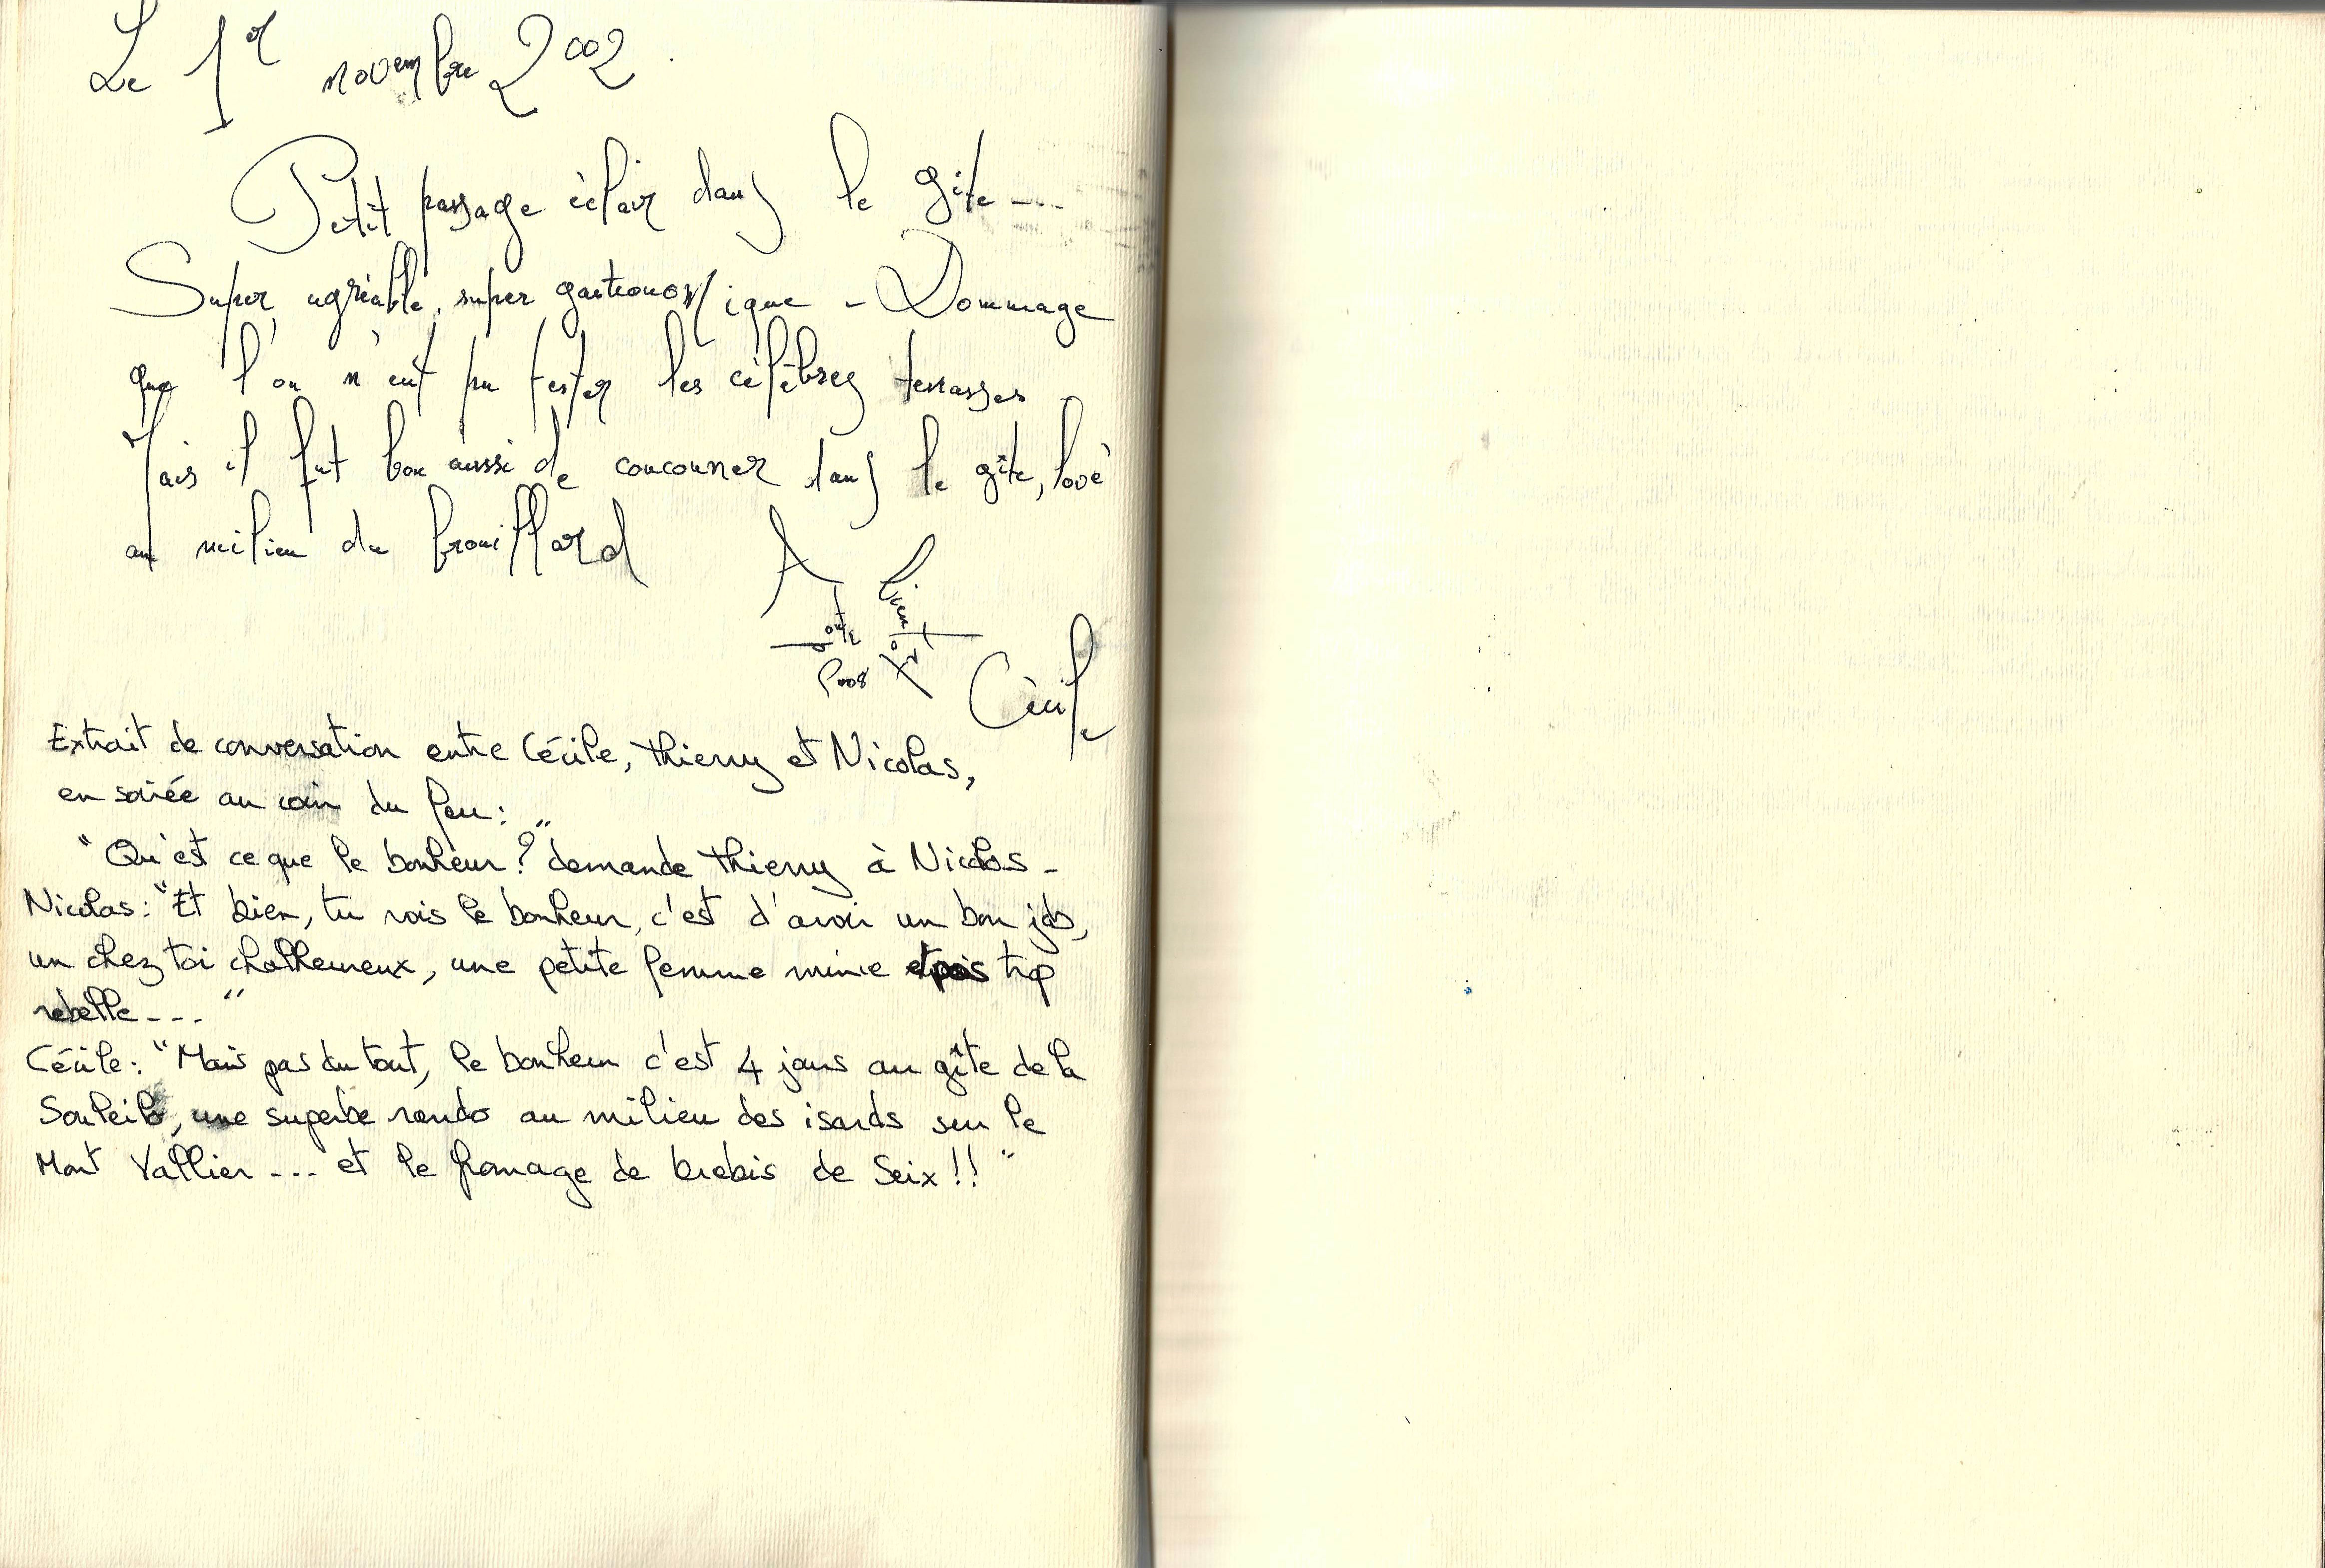 Le 1er novembre 2002.
Petit passage éclair dans le gîte ---
Super agréable, super gastronomique - Dommage
que l'on n'eut pu tester les célèbres terrasses -
Mais il fut bon aussi de coucouner dans le gîte, lové
au milieu du brouillard
A bientôt
pour
Cécile
Extrait de conversation entre Cécile, Thierry et Nicolas,
en soirée au coin du feu :
"Qu'est ce que le bonheur ?" demande Thierry à Nicolas -
Nicolas : "Et bien, tu vois le bonheur, c'est d'avoir un bon job,
un chez toi chalheureux, une petite femme mince et pas trop
rebelle --- "
Cécile : "Mais pas du tout, le bonheur c'est 4 jours au gîte de la
Souleilo, une superbe rando au milieu des isards sur le
Mont Vallier --- et le fromage de brebis de Seix !! "